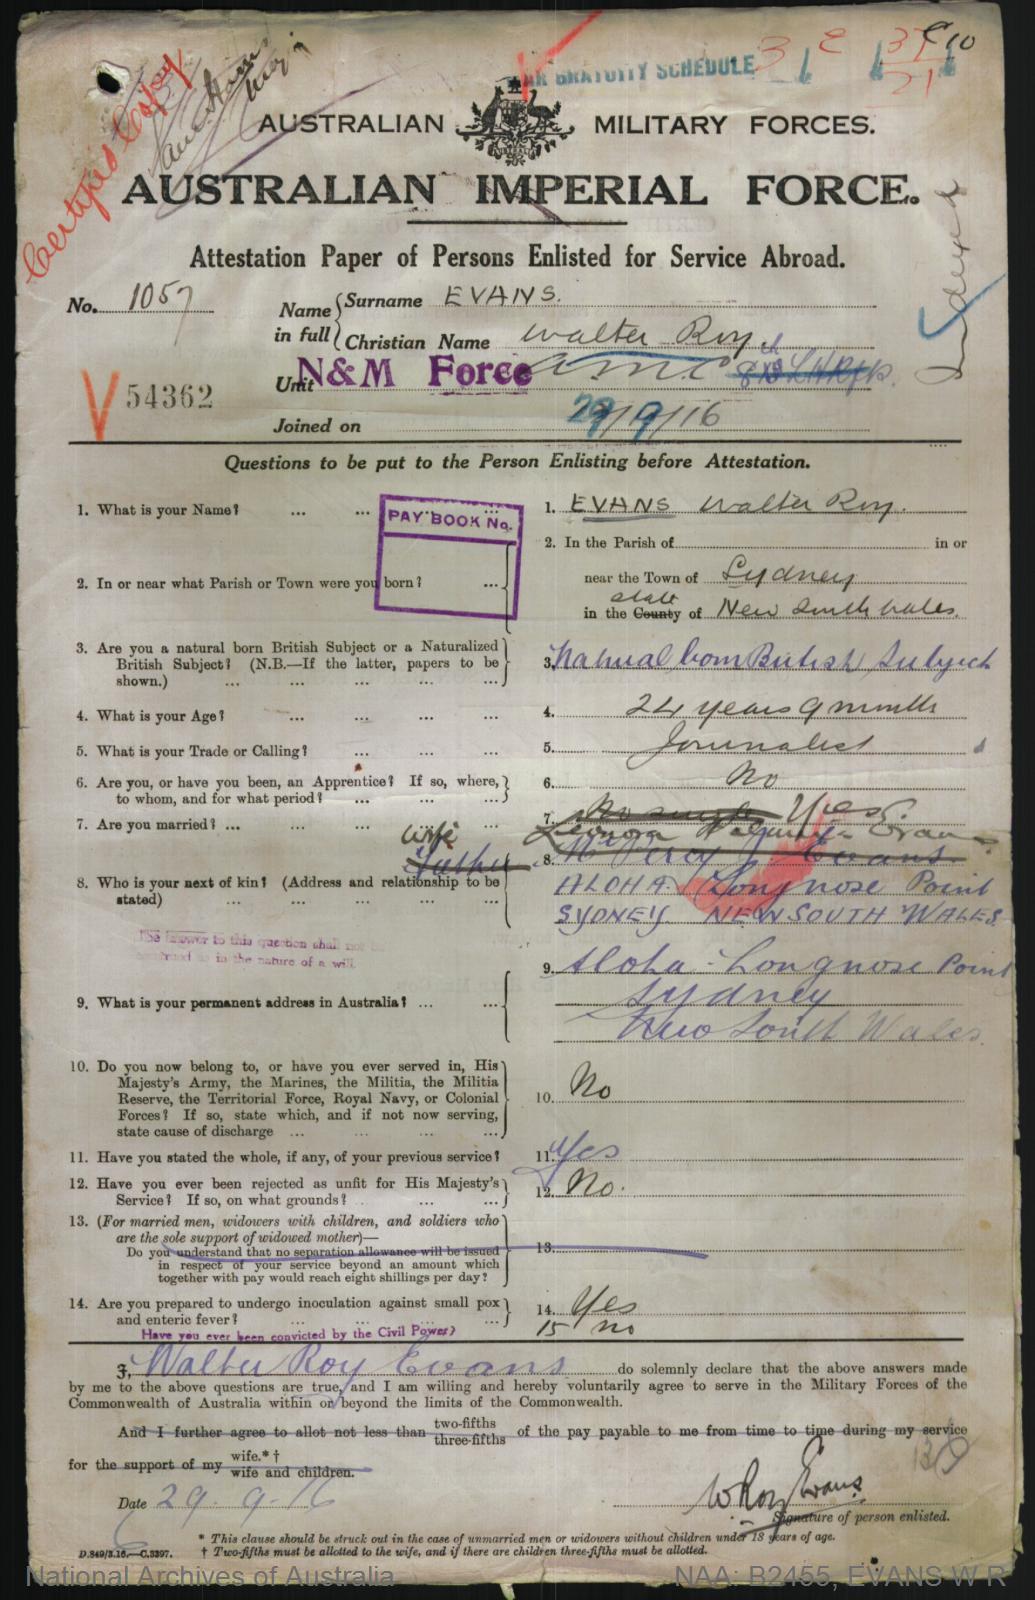 Certified Copy
WAR GRATUITY SCHEDULE
AUSTRALIAN MILITARY FORCES.
AUSTRALIAN IMPERIAL FORCE.
Indexed
Attestation Paper of Persons Enlisted for Service Abroad.
No. 1057
Name in full { Surname EVANS.
Christian Name Walter Roy
Unit N&M Force AMC
V 54362
Joined on 29/9/16
Questions to be put to the Person Enlisting before Attestation.
1. What is your Name? ... ... ... 1. EVANS Walter Roy.
PAY BOOK No.
2. In or near what Parish or Town were you born? ... 2. In the Parish of in or
near the Town of Sydney
state
in the County of New South Wales.
3. Are you a natural born British Subject or a Naturalized 3. Natural born British Subject
British Subject? (N.B.—If the latter, papers to be
shown.) ... ... ... ...
4. What is your Age? ... ... ... 4. 24 years 9 months
5. What is your Trade or Calling? ... ... ... 5. Journalist
6. Are you, or have you been, an Apprentice? If so, where, 6. No
to whom, and for what period? ... ... ...
7. Are you married? ... ... ... ... 7. No single Yes.
wife
Father
Evans
8. Who is your next of kin? (Address and relationship to be 8. Percy J. Evans
stated) ... ... ... ...
ALOHA. Longnose Point
SYDNEY NEW SOUTH WALES.
The answer to this question shall not be
construed as in the nature of a will.
9. What is your permanent address in Australia? ... ... 9. Aloha - Longnose Point
Sydney
New South Wales.
10. Do you now belong to, or have you ever served in, His 10. No
Majesty's Army, the Marines, the Militia, the Militia
Reserve, the Territorial Force, Royal Navy, or Colonial
Forces? If so, state which, and if not now serving,
state cause of discharge ... ... ... ...
11. Have you stated the whole, if any, of your previous service? 11. Yes
12. Have you ever been rejected as unfit for His Majesty's 12. No.
Service? If so, on what grounds? ... ...
13. (For married men, widowers with children, and soldiers who
are the sole support of widowed mother)—
Do you understand that no separation allowance will be issued 13.
in respect of your service beyond an amount which
together with pay would reach eight shillings per day?
14. Are you prepared to undergo inoculation against small pox 14. Yes
and enteric fever? ... ... ... ...
Have you ever been convicted by the Civil Power? 15 no
I, Walter Roy Evans do solemnly declare that the above answers made
by me to the above questions are true, and I am willing and hereby voluntarily agree to serve in the Military Forces of the
Commonwealth of Australia within or beyond the limits of the Commonwealth.
And I further agree to allot not less than two-fifths three-fifths of the pay payable to me from time to time during my service
for the support of my wife.*† wife and children.
Date 29. 9-16
W Roy Evans
Signature of person enlisted.
* This clause should be struck out in the case of unmarried men or widowers without children under 18 years of age.
D.849/3.16.—C.3397. † Two-fifths must be allotted to the wife, and if there are children three-fifths must be allotted.
National Archives of Australia NAA: B2455, EVANS W R